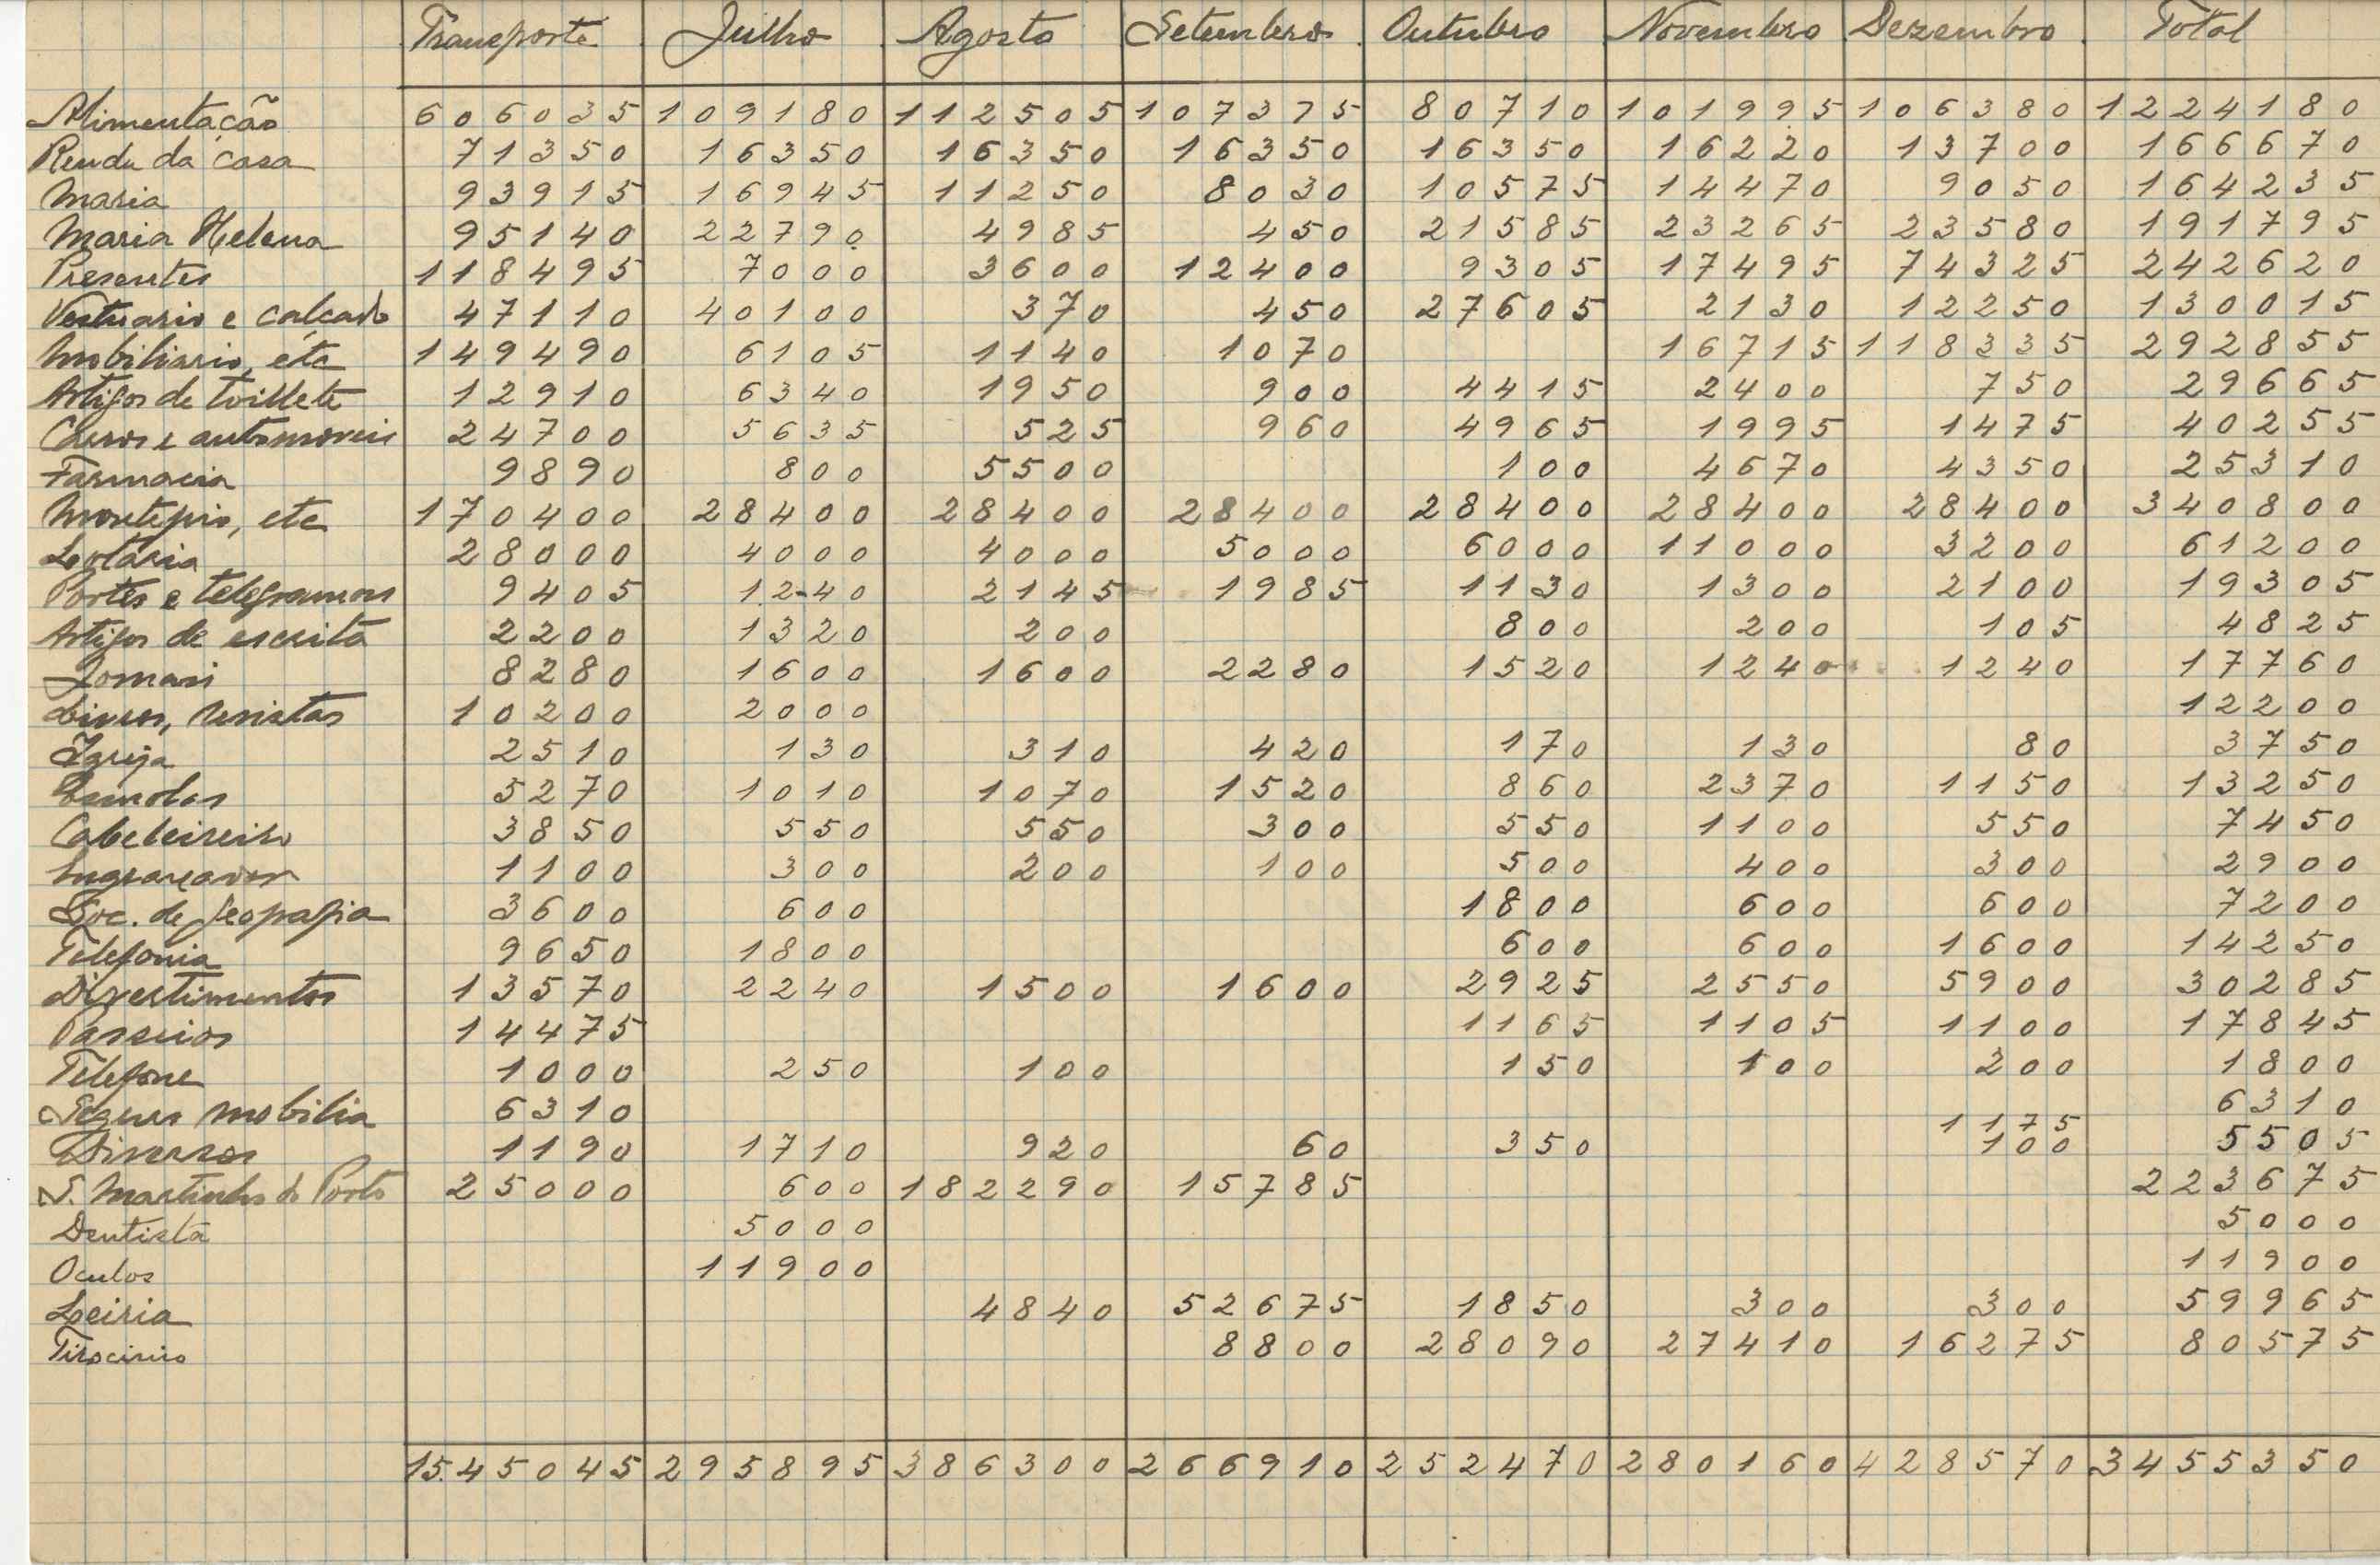 Transporte Julho Agosto Setembro Outubro Novembro Dezembro Total
Alimentação 606035 109180 112505 107375 80710 101995 106380 1224180
Renda da casa 71350 16350 16350 16350 16350 16220 13700 166670
Maria 93915 16945 11250 8030 10575 14470 9050 164235
Maria Helena 95140 22790 4985 450 21585 23265 23580 191795
Presentes 118495 7000 3600 12400 9305 17495 74325 242620
Vestuario e calcado 47110 40100 370 450 27605 2130 12250 130015
Mobiliario, etc 149490 6105 1140 1070 16715 118335 292855
Artigos de toillete 12910 6340 1950 900 4415 2400 750 29665
Carros e automoveis 24700 5635 525 960 4965 1995 1475 40255
Farmacia 9890 800 5500 100 4670 4350 25310
Montepio, etc 170400 28400 28400 28400 28400 28400 28400 340800
Lotaria 28000 4000 4000 5000 6000 11000 3200 61200
Portes e telegramas 9405 1240 2145 1985 1130 1300 2100 19305
Artigos de escrita 2200 1320 200 800 200 105 4825
Jornais 8280 1600 1600 2280 1520 1240 1240 17760
Livros, revistas 10200 2000 12200
Igreja 2510 130 310 420 170 130 80 3750
Esmolas 5270 1010 1070 1520 860 2370 1150 13250
Cabeleireiro 3850 550 550 300 550 1100 550 7450
Engraxador 1100 300 200 100 500 400 300 2900
Soc. de Geografia 3600 600 1800 600 600 7200
Telefonia 9650 1800 600 600 1600 14250
Divertimentos 13570 2240 1500 1600 2925 2550 5900 30285
Passeios 14475 1165 1105 1100 17845
Telefone 1000 250 100 150 100 200 1800
Seguro mobilia 6310 6310
1175
Diversos 1190 1710 920 60 350 100 5505
S. Martinho do Porto 25000 600 182290 15785 223675
Dentista 5000 5000
Oculos 11900 11900
Leiria 4840 52675 1850 300 300 59965
Tirocinio 8800 28090 27410 16275 80575
1545045 295895 386300 266910 252470 280160 428570 3455350